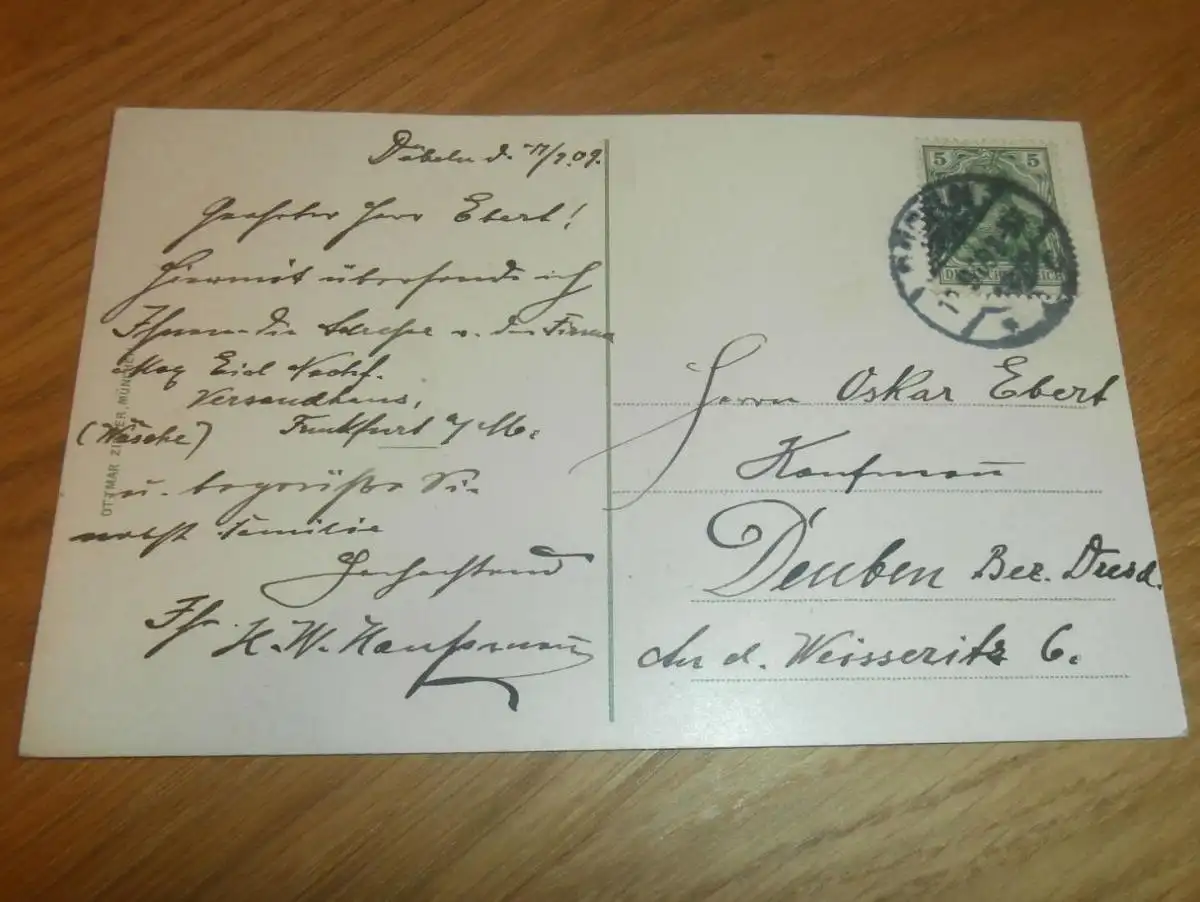 Döbeln d. 17/7.09.
Geehrter Herr Ebert!
Hiermit übersende ich
Ihnen die Adresse v. der Firma
Max Eick Nachf.
Versandhaus,
(Wäsche) Frankfurt a/M.
u. begrüsse Sie
nebst Familie
Hochachtend
Ihr H. W. Kaufmann
OTTMAR ZIEHER, MÜNCHEN
5 5
DEUTSCHES REICH
Herrn Oskar Ebert
Kaufmann
Deuben Bez. Dresd.
An d. Weisseritz 6.